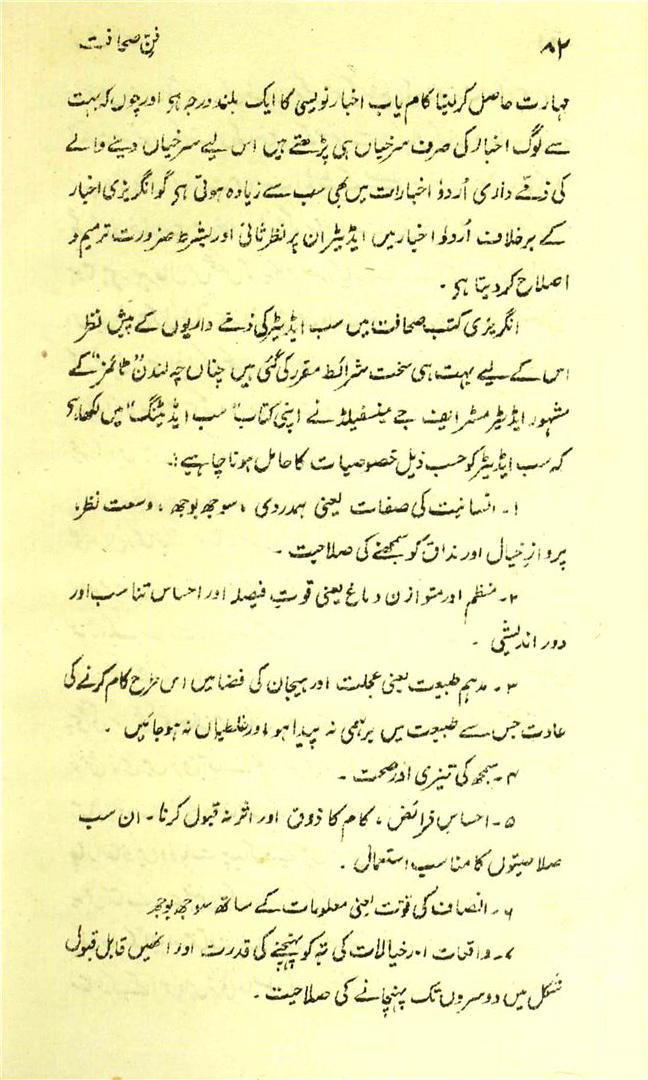 ۸۲ فن صحافت
مہارت حاصل کرلینا کام یاب اخبار نویسی کا ایک بلند درجہ ہو اور چوں کہ بہت
سے لوگ اخبار کی صرف سرخیاں ہی پڑھتے ہیں اس لیے سرخیاں دینے والے
کی ذمے داری اُردو اخبارات میں بھی سب سے زیادہ ہوتی ہو گو انگریزی اخبار
کے برخلاف اُردو اخبار میں ایڈیٹر ان پر نظر ثانی اور بشرط ضرورت ترمیم و
اصلاح کر دیتا ہو ۔
انگریزی کتب صحافت میں سب ایڈیٹر کی ذمے داریوں کے پیش نظر
اس کے لیے بہت ہی سخت شرائط مقرر کی گئی ہیں چناں چہ لندن "ٹائمز" کے
مشہور ایڈیٹر مسٹر ایف جے مینسفیلڈ نے اپنی کتاب "سب ایڈیٹنگ" میں لکھا ہو
کہ سب ایڈیٹر کو حسب ذیل خصوصیات کا حامل ہونا چاہیے :۔
۱۔ انسانیت کی صفات یعنی ہمدردی ، سوجھ بوجھ ، وسعت نظر،
پروازِ خیال اور مذاق کو سمجھنے کی صلاحیت ۔
۲۔ منظم اور متوازن دماغ یعنی قوتِ فیصلہ اور احساس تناسب اور
دور اندیشی ۔
۳۔ مدہم طبیعت یعنی عجلت اور ہیجان کی فضا میں اس طرح کام کرنے کی
عادت جس سے طبیعت میں برہمی نہ پیدا ہو اور غلطیاں نہ ہو جائیں ۔
۴۔ سمجھ کی تیزی اور صحت ۔
۵۔ احساسِ فرائض ، کام کا ذوق اور اثر نہ قبول کرنا ۔ ان سب
صلاحیتوں کا مناسب استعمال ۔
۶۔ انصاف کی قوت یعنی معلومات کے ساتھ سوجھ بوجھ
۷۔ واقعات اور خیالات کی تہ کو پہنچنے کی قدرت اور انھیں قابل قبول
شکل میں دوسروں تک پہنچانے کی صلاحیت ۔